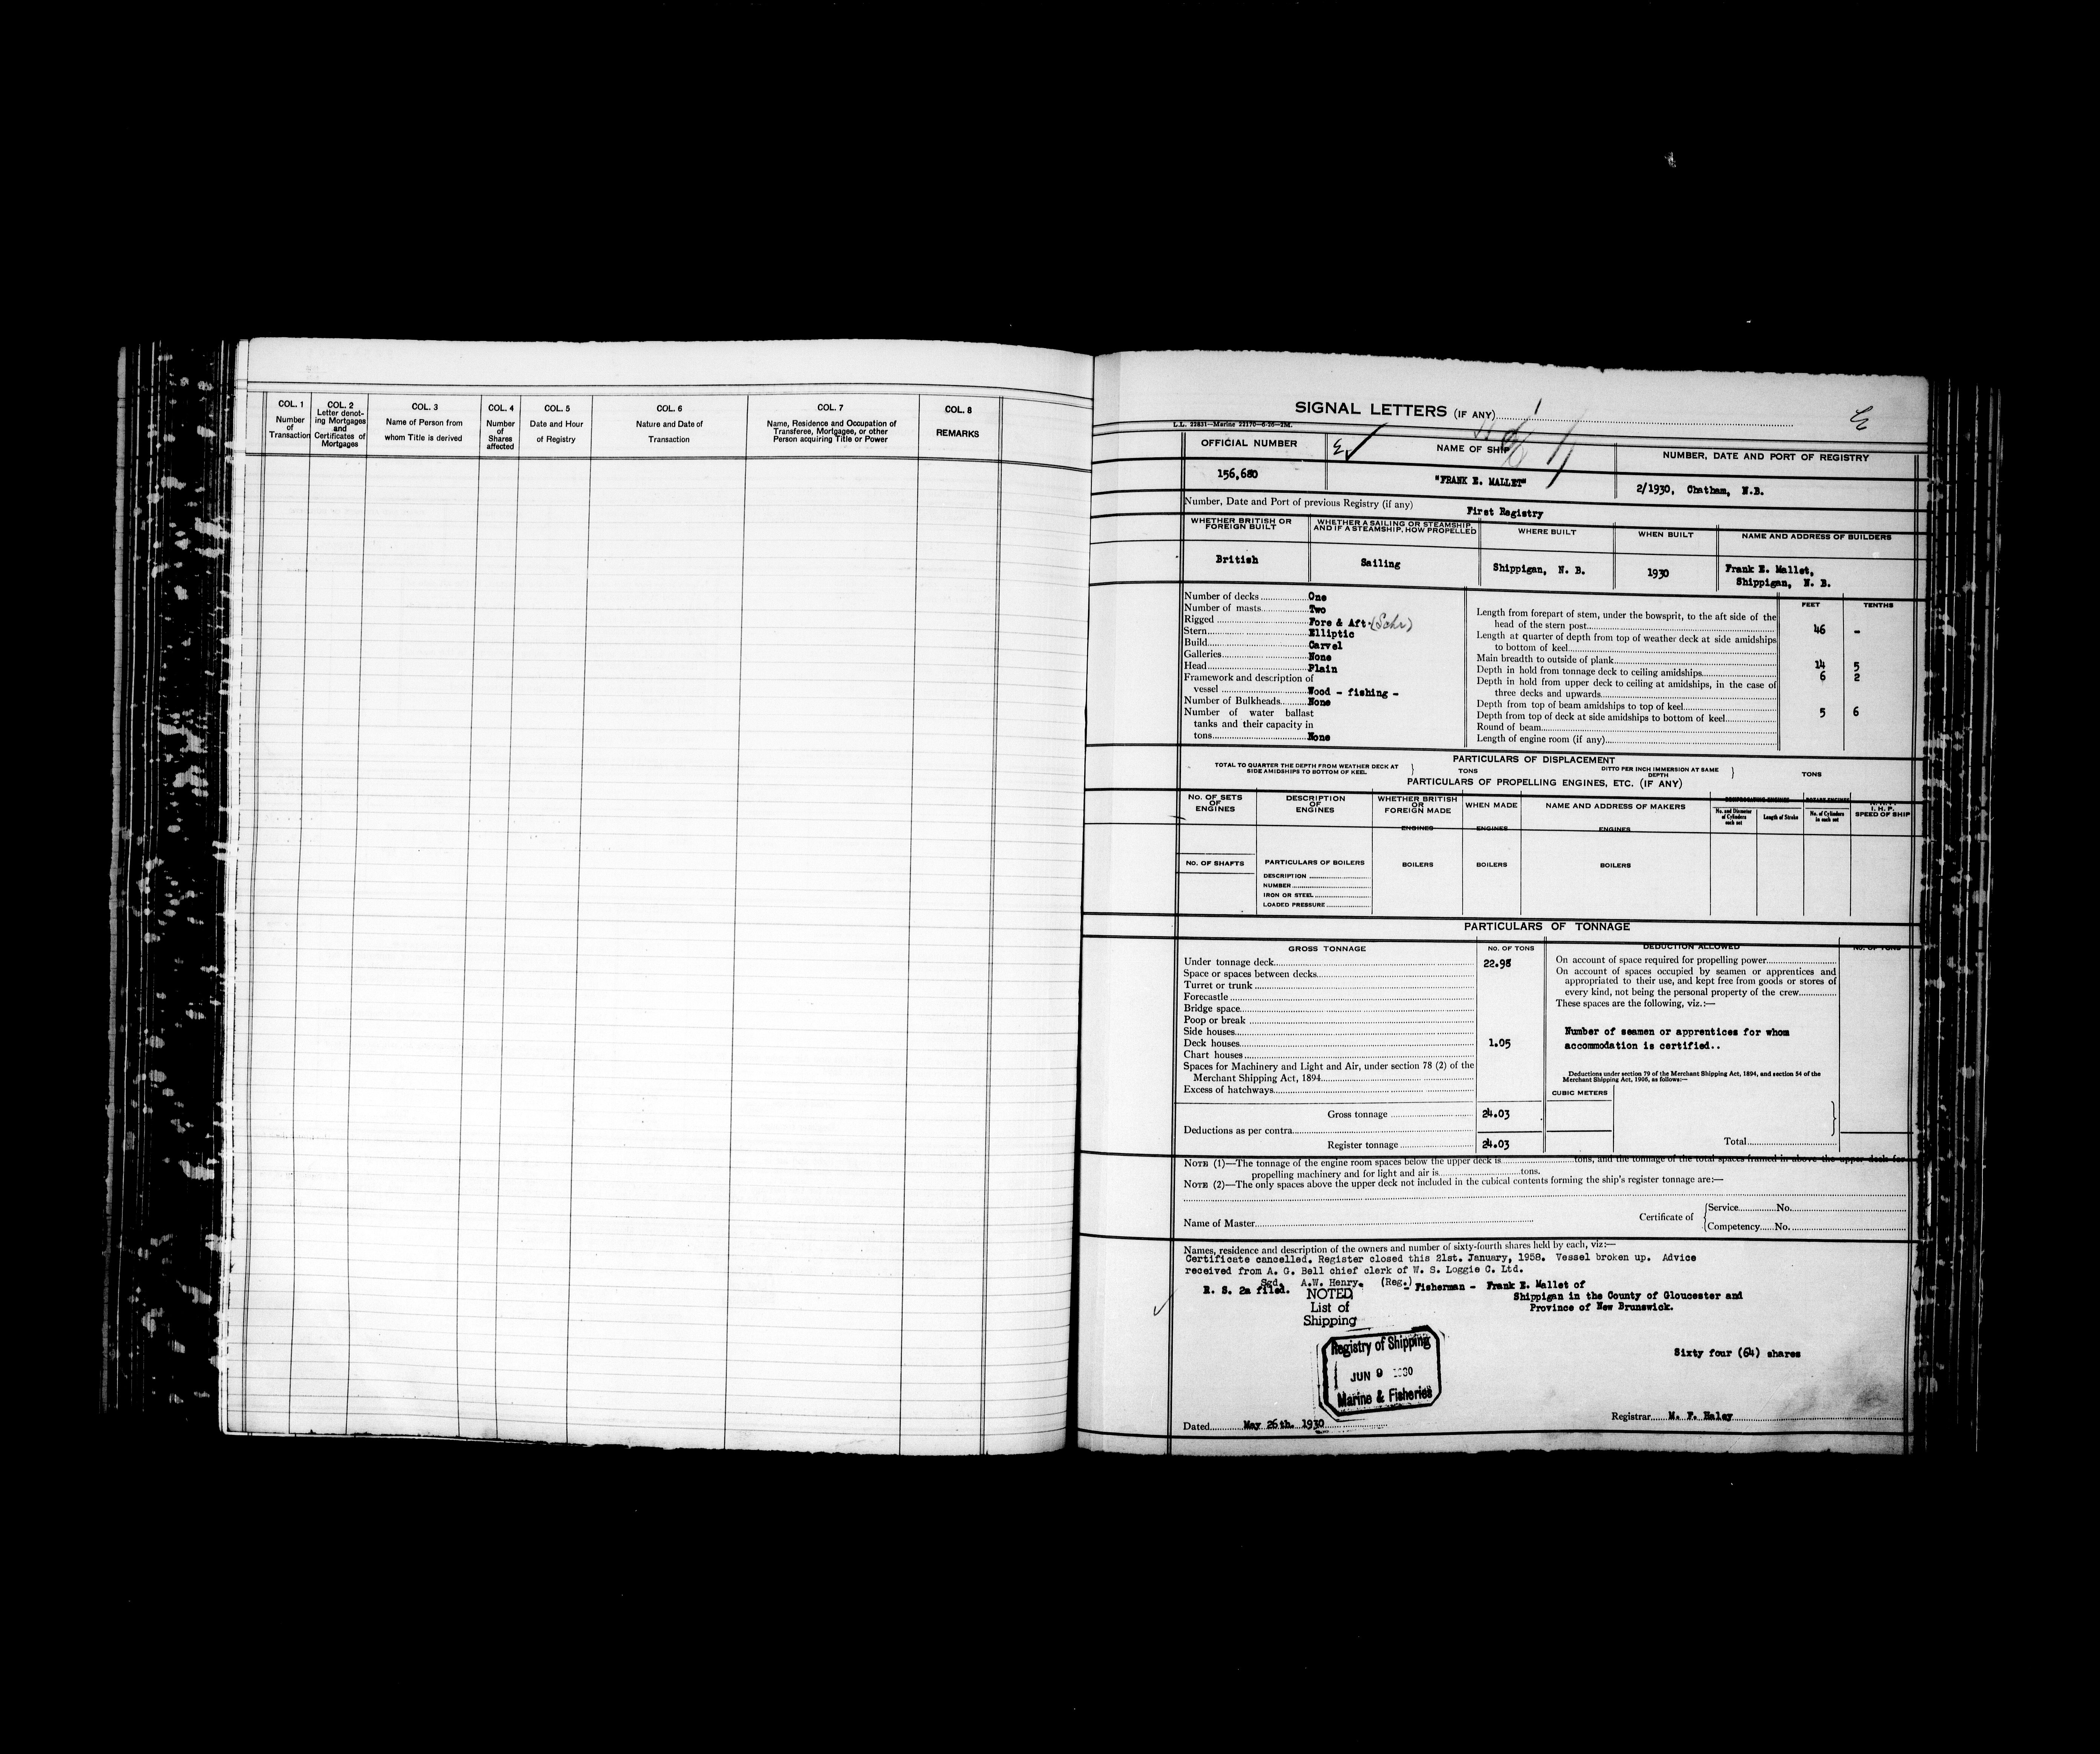 COL. 1
Number
of
Transaction
COL. 2
Letter denot-
ing Mortgages
and
Certificates of
Mortgages
COL. 3
Name of Person from
whom Title is derived
COL. 4
Number
of
Shares
affected
COL. 5
Date and Hour
of Registry
COL. 6
Nature and Date of
Transaction
COL. 7
Name, Residence and Occupation of
Transferee, Mortgagee, or other
Person acquiring Title or Power
COL. 8
REMARKS
SIGNAL LETTERS (IF ANY)
L.L. 22831—Marine 22170—6-26—2M.
OFFICIAL NUMBER
NAME OF SHIP
NUMBER, DATE AND PORT OF REGISTRY
156,680
"FRANK E. MALLET"
2/1930, Chatham, N.B.
Number, Date and Port of previous Registry (if any)
First Registry
WHETHER BRITISH OR
FOREIGN BUILT
WHETHER A SAILING OR STEAMSHIP,
AND IF A STEAMSHIP, HOW PROPELLED
WHERE BUILT
WHEN BUILT
NAME AND ADDRESS OF BUILDERS
British
Sailing
Shippigan, N. B.
1930
Frank E. Mallet,
Shippigan, N. B.
Number of decks One
Number of masts Two
Rigged Fore & Aft (Schr)
Stern Elliptic
Build Carvel
Galleries None
Head Plain
Framework and description of
vessel Wood - fishing -
Number of Bulkheads None
Number of water ballast
tanks and their capacity in
tons None
FEET TENTHS
Length from forepart of stem, under the bowsprit, to the aft side of the
head of the stern post 46 -
Length at quarter of depth from top of weather deck at side amidships
to bottom of keel
Main breadth to outside of plank 14 5
Depth in hold from tonnage deck to ceiling amidships 6 2
Depth in hold from upper deck to ceiling at amidships, in the case of
three decks and upwards
Depth from top of beam amidships to top of keel 5 6
Depth from top of deck at side amidships to bottom of keel
Round of beam
Length of engine room (if any)
PARTICULARS OF DISPLACEMENT
TOTAL TO QUARTER THE DEPTH FROM WEATHER DECK AT
SIDE AMIDSHIPS TO BOTTOM OF KEEL
TONS
DITTO PER INCH IMMERSION AT SAME
DEPTH
TONS
PARTICULARS OF PROPELLING ENGINES, ETC. (IF ANY)
No. OF SETS
OF
ENGINES
DESCRIPTION
OF
ENGINES
WHETHER BRITISH
OR
FOREIGN MADE
WHEN MADE
NAME AND ADDRESS OF MAKERS
No. and Diameter
of Cylinders
each set
Length of Stroke
No. of Cylinders
in each set
I. H. P.
SPEED OF SHIP
ENGINES
ENGINES
ENGINES
No. OF SHAFTS
PARTICULARS OF BOILERS
BOILERS
BOILERS
BOILERS
DESCRIPTION
NUMBER
IRON OR STEEL
LOADED PRESSURE
PARTICULARS OF TONNAGE
GROSS TONNAGE
No. OF TONS
DEDUCTION ALLOWED
No. OF TONS
Under tonnage deck 22.98
Space or spaces between decks
Turret or trunk
Forecastle
Bridge space
Poop or break
Side houses
Deck houses 1.05
Chart houses
Spaces for Machinery and Light and Air, under section 78 (2) of the
Merchant Shipping Act, 1894
Excess of hatchways
Gross tonnage 24.03
Deductions as per contra
Register tonnage 24.03
On account of space required for propelling power
On account of spaces occupied by seamen or apprentices and
appropriated to their use, and kept free from goods or stores of
every kind, not being the personal property of the crew
These spaces are the following, viz.:—
Number of seamen or apprentices for whom
accommodation is certified..
Deductions under section 79 of the Merchant Shipping Act, 1894, and section 54 of the
Merchant Shipping Act, 1906, as follows:—
CUBIC METERS
Total
NOTE (1)—The tonnage of the engine room spaces below the upper deck is tons, and the tonnage of the total spaces framed in above the upper deck for
propelling machinery and for light and air is tons.
NOTE (2)—The only spaces above the upper deck not included in the cubical contents forming the ship's register tonnage are:—
Name of Master
Certificate of
Service No.
Competency No.
Names, residence and description of the owners and number of sixty-fourth shares held by each, viz:—
Certificate cancelled. Register closed this 21st. January, 1958. Vessel broken up. Advice
received from A. G. Bell chief clerk of W. S. Loggie C. Ltd.
Sgd. A.W. Henry. (Reg.)
R. S. 2a filed.
- Fisherman - Frank E. Mallet of
Shippigan in the County of Gloucester and
Province of New Brunswick.
NOTED
List of
Shipping
Registry of Shipping
JUN 9 1930
Marine & Fisheries
Sixty four (64) shares
Dated May 26th. 1930
Registrar M. F. Haley